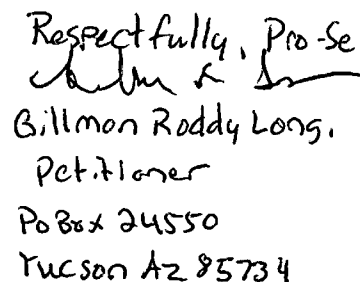 Respectfully, Pro-Se
Gillmon Roddy Long.
Petitioner
Po Box 24550
Tucson Az 85734